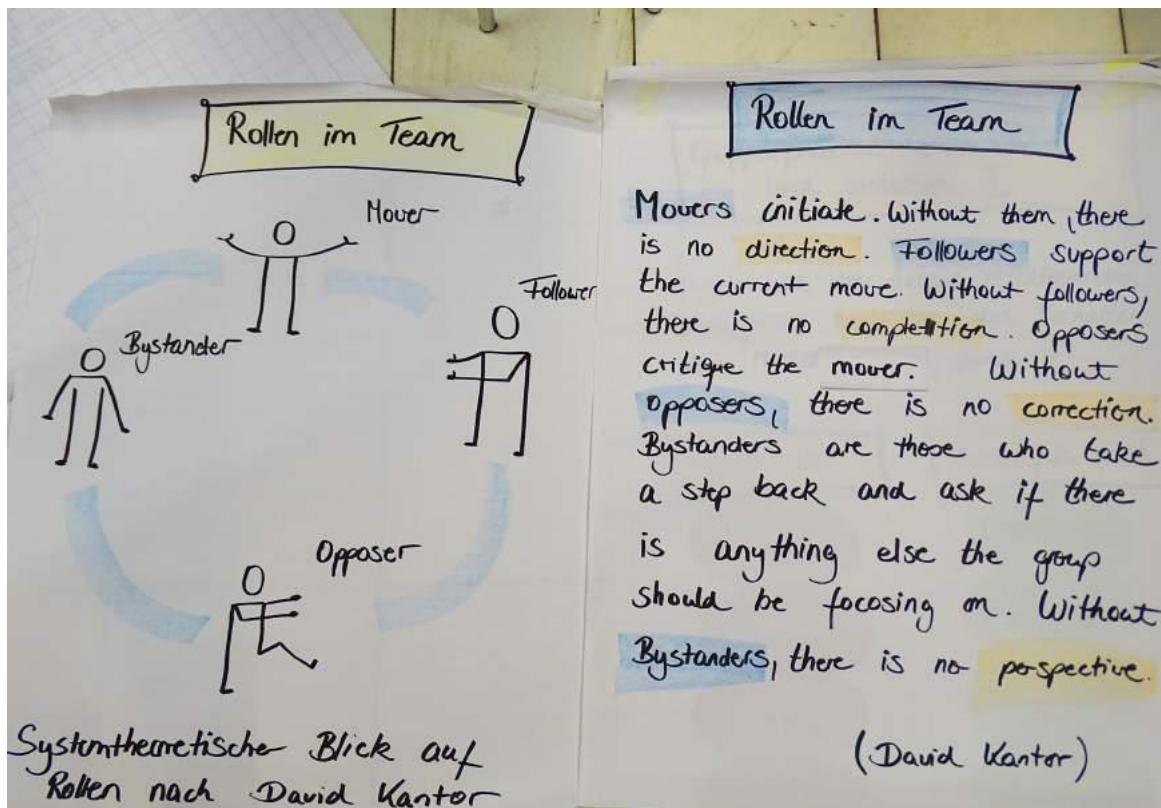 Rollen im Team
Mover
Follower
Bystander
Opposer
Systemtheoretischer Blick auf
Rollen nach David Kantor
Rollen im Team
Movers initiate. Without them, there
is no direction. Followers support
the current move. Without followers,
there is no completion. Opposers
critique the mover. Without
opposers, there is no correction.
Bystanders are those who take
a step back and ask if there
is anything else the group
should be focosing on. Without
Bystanders, there is no perspective.
(David Kantor)